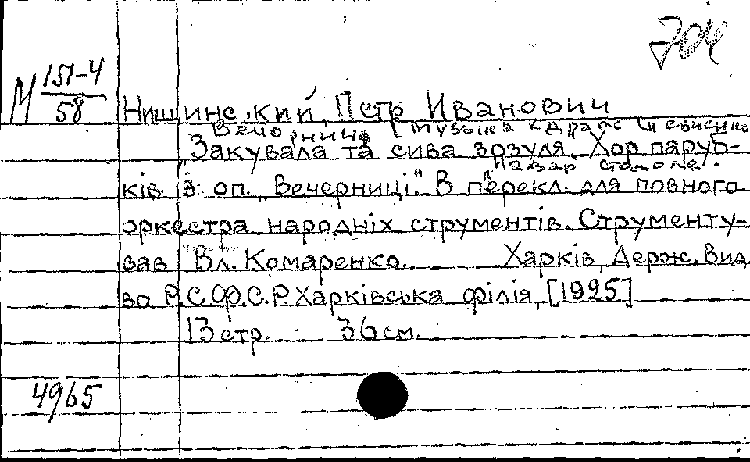 704
М 151-4
58
Нишинский, Петр Иванович
Вечорниці [Музыка к драме
Закувала та сива зозуля. Хор паруб-
"Назар Стодоля."
ків з оп. "Вечерниці." В перекл. для повного
оркестра народніх струменті́в. Струменту-
вав Вл. Комаренко. Харків, Держ. Вид
во Р.С.Ф.С.Р. Харківська філія, [1925]
13 стр. 36 см.
4965